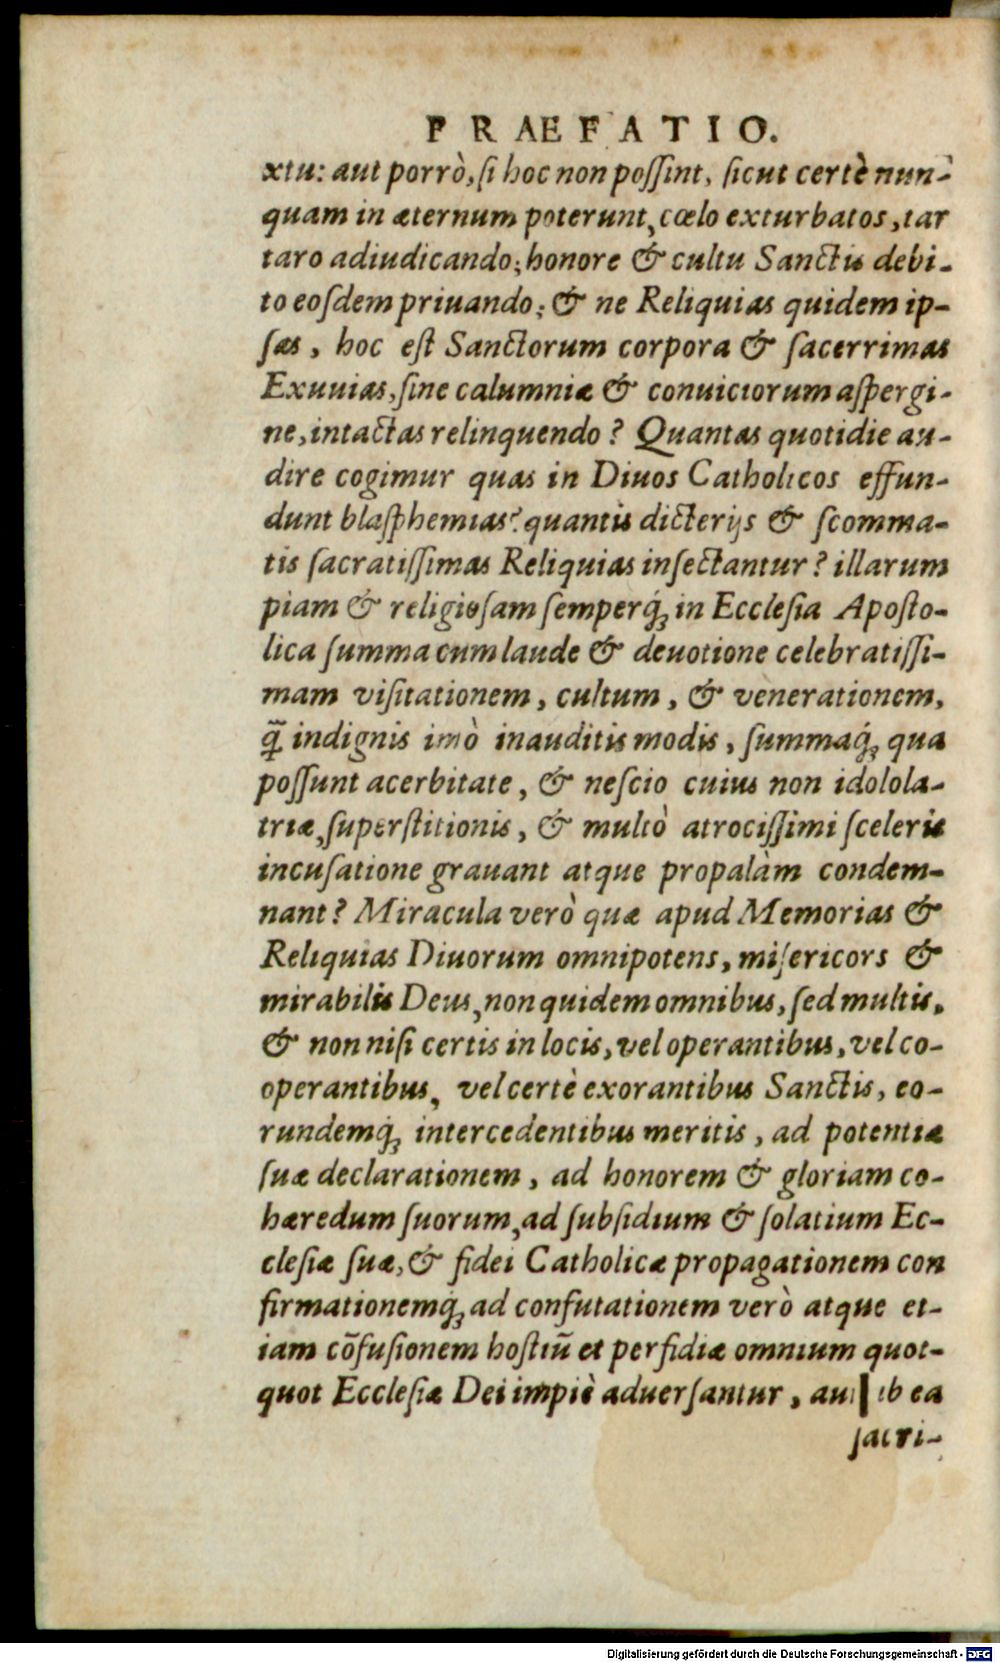 PRAEFATIO.
xtu: aut porrò, ſi hoc non poſſint, ſicut certè nun-
quam in æternum poterunt, cœlo exturbatos, tar
taro adiudicando; honore & cultu Sanctis debi-
to eoſdem priuando; & ne Reliquias quidem ip-
ſas, hoc eſt Sanctorum corpora & ſacerrimas
Exuuias, ſine calumniæ & conuiciorum aſpergi-
ne, intactas relinquendo? Quantas quotidie au-
dire cogimur quas in Diuos Catholicos effun-
dunt blaſphemias? quantis dicterijs & ſcomma-
tis ſacratiſſimas Reliquias inſectantur? illarum
piam & religioſam ſemperq́; in Eccleſia Apoſto-
lica ſumma cum laude & deuotione celebratiſſi-
mam viſitationem, cultum, & venerationem,
q̃ indignis imò inauditis modis, ſummaq́; qua
poſſunt acerbitate, & neſcio cuius non idolola-
triæ, ſuperſtitionis, & multò atrociſſimi ſceleris
incuſatione grauant atque propalàm condem-
nant? Miracula verò quæ apud Memorias &
Reliquias Diuorum omnipotens, miſericors &
mirabilis Deus, non quidem omnibus, ſed multis,
& non niſi certis in locis, vel operantibus, vel co-
operantibus, vel certè exorantibus Sanctis, eo-
rundemq́; intercedentibus meritis, ad potentiæ
ſuæ declarationem, ad honorem & gloriam co-
hæredum ſuorum, ad ſubſidium & ſolatium Ec-
cleſiæ ſuæ, & fidei Catholicæ propagationem con
firmationemq́; ad confutationem verò atque et-
iam cõfuſionem hoſtiũ et perfidiæ omnium quot-
quot Eccleſiæ Dei impiè aduerſantur, ea
ſacri-
Digitalisierung gefördert durch die Deutsche Forschungsgemeinschaft - DFG